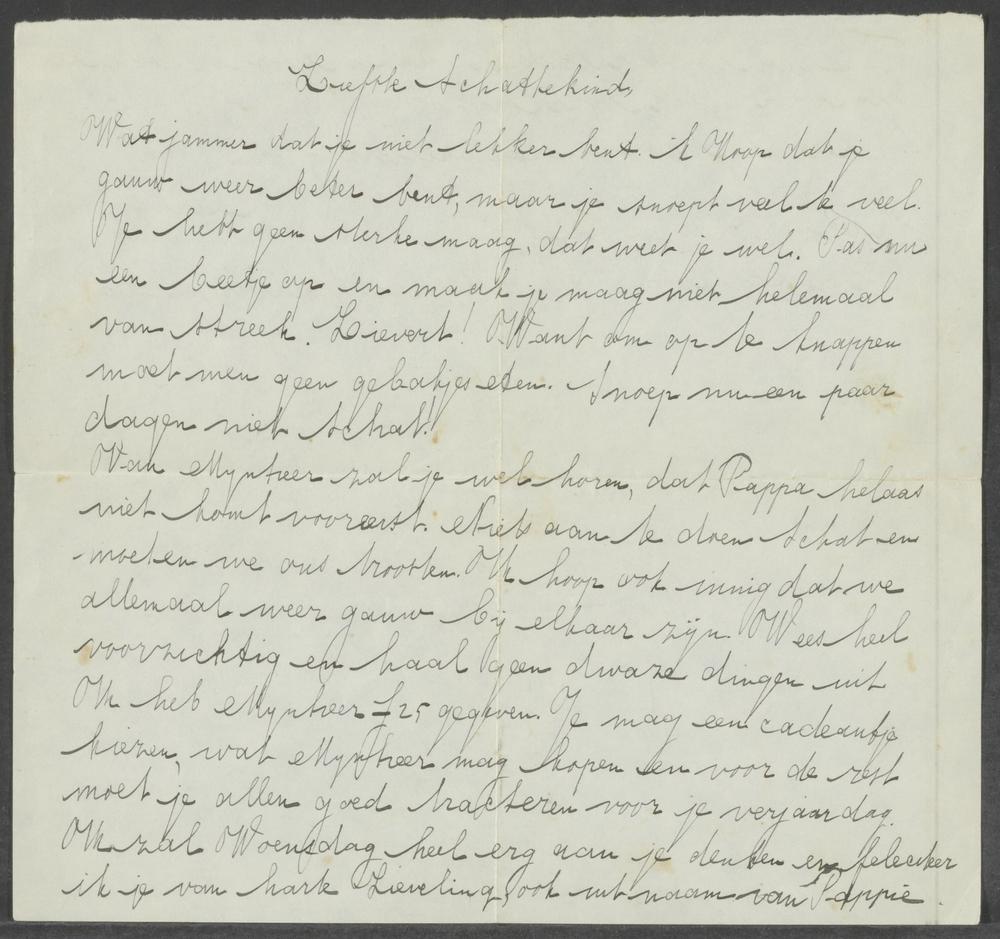 Liefste schattekind,
Wat jammer dat je niet lekker bent. ik Hoop dat je
gauw weer beter bent, maar je snoept veel te veel.
Je hebt geen sterke maag, dat weet je wel. Pas nu
een beetje op en maak je maag niet helemaal
van streek. Lievert! Want om op te knappen
moet men geen gebakjes eten. Snoep nu een paar
dagen niet schat!
Van Mynheer zal je wel horen, dat Pappa helaas
niet komt vooreerst. Niets aan te doen schat en
moeten we ons troosten. Ik hoop ook innig dat we
allemaal weer gauw bij elkaar zijn. Wees heel
voorzichtig en haal geen dwaze dingen uit
Ik heb Mynheer £ 25 gegeven. Je mag een cadeautje
kiezen, wat Mynheer mag kopen en voor de rest
moet je allen goed tracteren voor je verjaardag.
Ik zal Woensdag heel erg aan je denken en feleciteer
ik je van harte Lieveling, ook uit naam van Pappie.